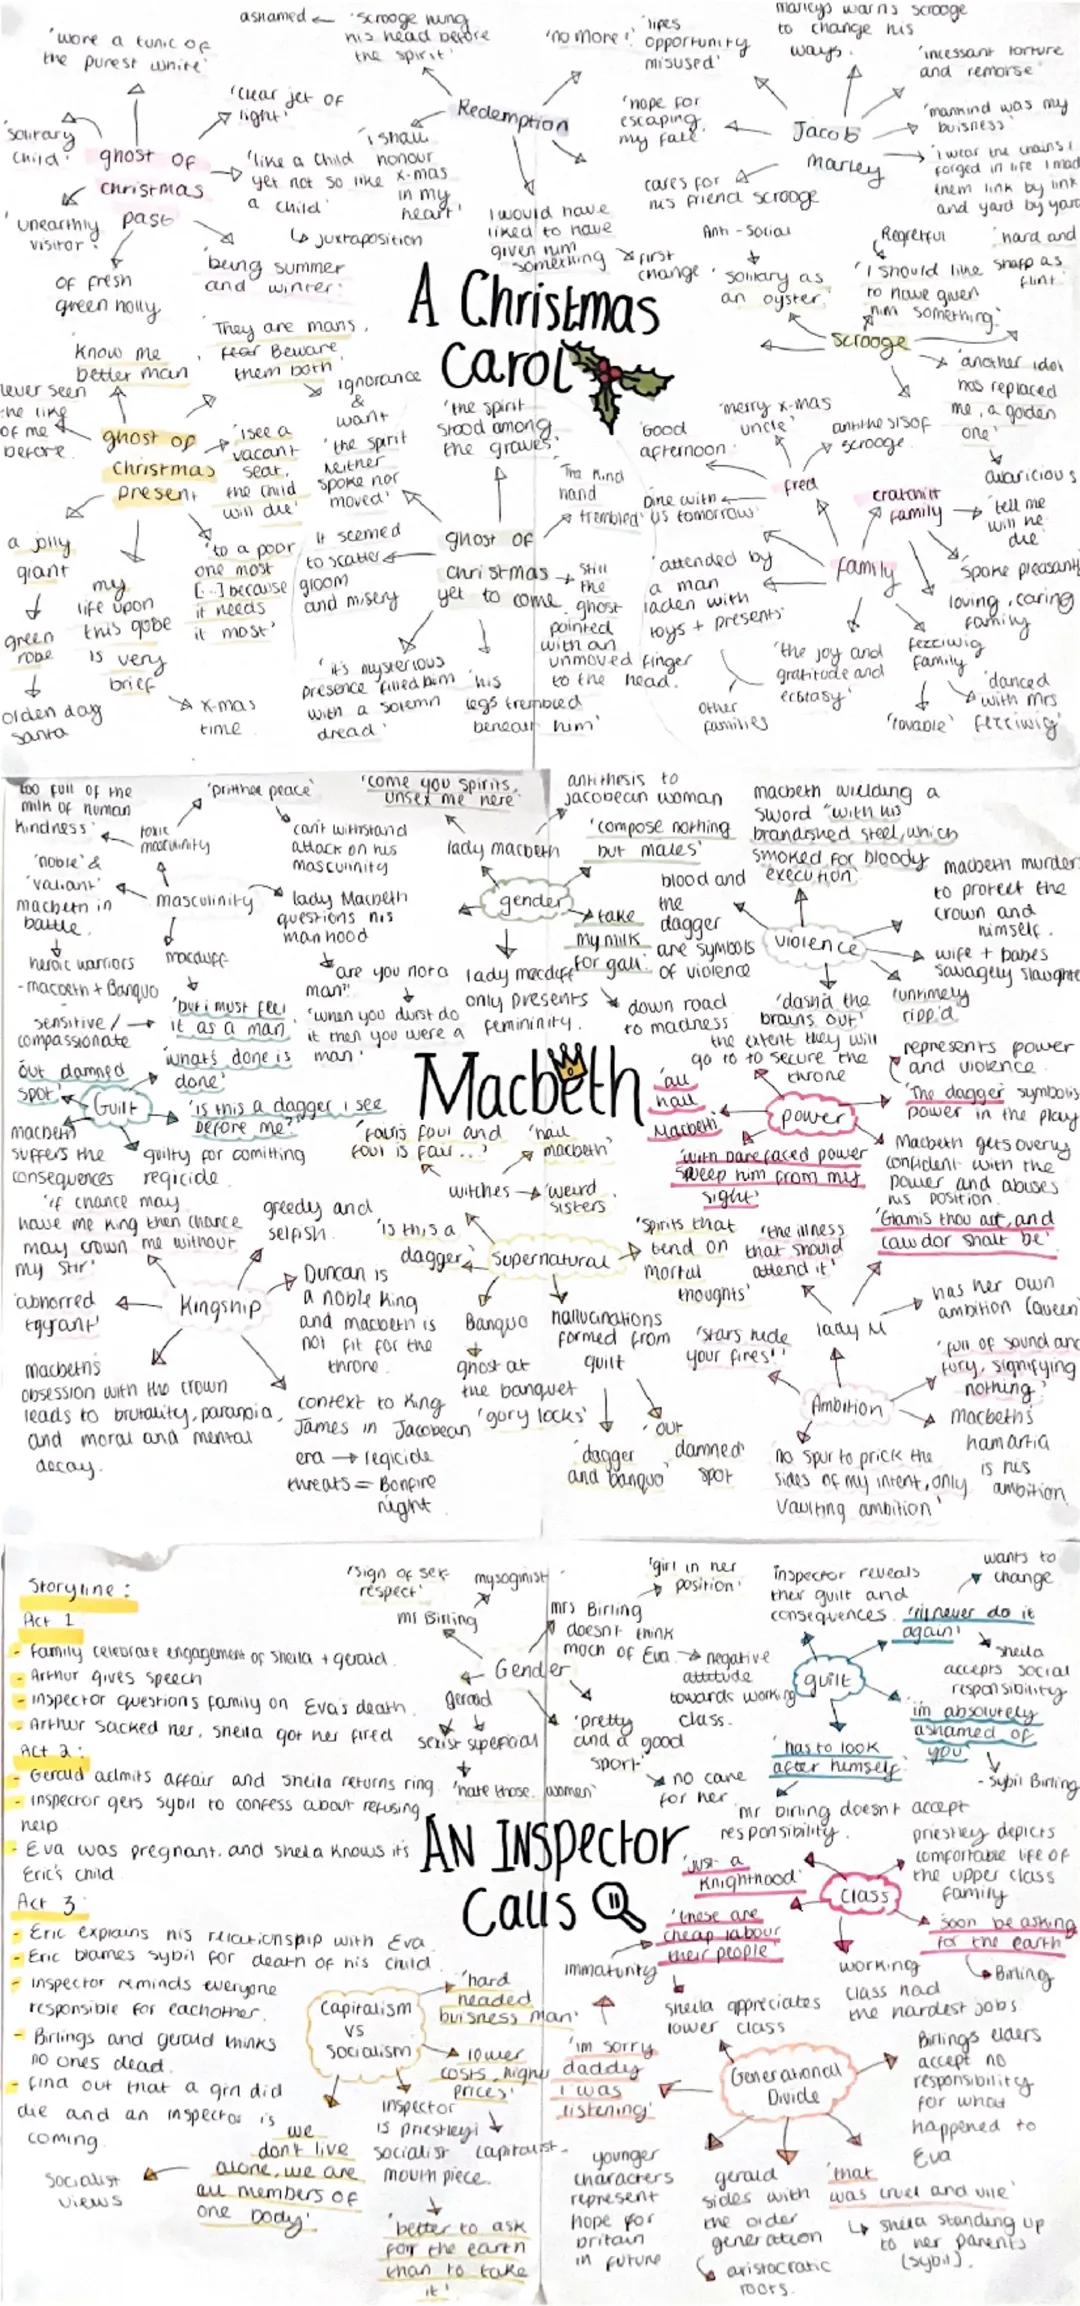 A Christmas
Carol
ghost of
christmas
past
'wore a tunic of
the purest white'
'clear jet of
light'
'solitary
child'
'like a child
yet not so like
a child'
↳ juxtaposition
'unearthly
visitor'
of fresh
green holly
'being summer
and winter'
Redemption
ashamed ← 'scrooge hung
his head before
the spirit'
'no more!'
'lifes
opportunity
misused'
'i shall
honour
x-mas
in my
heart'
I would have
liked to have
given him
something
first
change
Jacob
Marley
marleys warns scrooge
to change his
ways.
'incessant torture
and remorse'
'mankind was my
buisness'
'i wear the chains i
forged in life i mad
them link by link
and yard by yard
'hope for
escaping
my fate'
cares for
his friend scrooge
scrooge
Anti-social
'solitary as
an oyster'
Regretful
'I should like
to have given
him something'
'hard and
sharp as
flint'
'another idol
has replaced
me, a golden
one'
avaricious
ghost of
christmas
present
'know me
better man
'They are mans,
fear Beware
them both
ignorance
&
want
never seen
the like
of me
before
'i see a
vacant
seat,
the child
will die'
a jolly
giant
green
robe
olden day
santa
my
life upon
this globe
is very
brief
x-mas
time
'to a poor
one most
[...] because
it needs
it most'
ghost of
christmas
yet to come
'the spirit
stood among
the graves'
'the spirit
neither
spoke nor
moved'
The kind
hand
trembled'
It seemed
to scatter
gloom
and misery
still
the
ghost
pointed
with an
unmoved finger
to the head.
'it's mysterious
presence filled him
with a solemn
dread'
'his
legs trembled
beneath him'
family
fred
'merry x-mas
uncle'
antithesis of
scrooge
'Good
afternoon'
Dine with
us tomorrow'
cratchitt
family
'tell me
will he
die'
'spoke pleasant
loving, caring
family
'attended by
a man
laden with
toys + presents'
other
families
'the joy and
gratitude and
ecstasy'
fezziwig
family
'lovable'
'danced
with mrs
fezziwig'
Macbeth
masculinity
toxic
masculinity
too full of the
milk of human
kindness'
'prithee peace'
can't withstand
attack on his
masculinity
'noble' &
'valiant'
macbeth in
battle.
heroic warriors
-macbeth + Banquo
lady Macbeth
questions his
manhood
'are you not a
man"
'when you durst do
it then you were a
man'
macduff
'but i must feel
it as a man.
sensitive /
compassionate
gender
lady macbeth
'come you spirits,
unsex me here'
antithesis to
jacobean woman
'compose nothing
but males'
'take
my milk
for gall'
down road
to madness
lady macduff
only presents
femininity.
violence
macbeth wielding a
sword "with his
brandished steel, which
smoked for bloody
execution'
blood and
the
dagger
are symbols
of violence
macbeth murders
to protect the
crown and
himself.
wife + babes
savagely slaughte
'untimely
ripp'd
'dash'd the
brains out'
Guilt
'out damned
spot'
'what's done is
done'
'is this a dagger i see
before me?'
macbeth
suffers the
consequences
guilty for comitting
regicide
power
the extent they will
go to to secure the
throne
'all
hail
Macbeth'
'with barefaced power
sweep him from my
sight'
represents power
and violence.
'The dagger' symbolis
power in the play
Macbeth gets overly
confident with the
power and abuses
his position.
Kingship
'if chance may
have me king then chance
may crown me without
my stir'
greedy and
selfish.
'abhorred
tyrant'
Duncan is
a noble king
and macbeth is
not fit for the
throne.
macbeths
obsession with the crown
leads to brutality, paranoia,
and moral and mental
decay.
context to King
James in Jacobean
era → regicide
threats = Bonfire
night
Supernatural
witches
'fair is foul and
foul is fair...'
'hail
macbeth'
'weird
sisters
'is this a
dagger'
'spirits that
tend on
mortal
thoughts'
Banquo
ghost at
the banquet
'gory locks'
hallucinations
formed from
guilt
'dagger
and banquo'
'out
damned
spot
Ambition
lady M
'the illness
that should
attend it'
'Glamis thou art, and
cawdor shalt be'
has her own
ambition (queen)
'stars hide
your fires!'
'full of sound and
fury, signifying
nothing'
macbeths
hamartia
is his
ambition
no spur to prick the
sides of my intent, only
vaulting ambition'
AN INSPECTOR
Calls
Storyline:
Act 1
- Family celebrate engagement of Sheila + gerald.
- Arthur gives speech
- Inspector questions family on Eva's death.
- Arthur sacked her, sheila got her fired
Act 2:
- Gerald admits affair and sheila returns ring.
- inspector gets sybil to confess about refusing
help
- Eva was pregnant. and sheila knows its
Eric's child
Act 3:
- Eric explains his relationship with Eva
- Eric blames sybil for death of his child
- inspector reminds everyone
responsible for eachother.
- Birlings and gerald thinks
no ones dead.
- find out that a girl did
die and an inspector is
coming.
Gender
mr Birling
'sign of self
respect'
mysoginist
mrs Birling
doesn't think
much of Eva
'girl in her
position'
negative
attitude
towards working
class.
gerald
sexist
superficial
'hate those women'
'pretty
and a good
sport'
no care
for her
guilt
inspector reveals
their guilt and
consequences.
wants to
change
'i'll never do it
again'
sheila
accepts social
responsibility
im absolutely
ashamed of
you
- Sybil Birling
'has to look
after himself'
mr birling doesn't accept
responsibility.
class
'just a
knighthood'
'these are
cheap labour
their people'
sheila appreciates
lower class
priestley depicts
comfortable life of
the upper class
family
soon be asking
for the earth
Birling
working
class had
the hardest jobs
Capitalism
vs
socialism
'hard
headed
buisness man'
'lower
costs, higher
prices'
capitalist
we
don't live
alone, we are
all members of
one body'
socialist
views
inspector
is priestleyi
socialist
mouth piece.
'better to ask
for the earth
than to take
it'
Generational
Divide
immaturity
'im sorry
daddy
i was
listening'
Birlings elders
accept no
responsibility
for what
happened to
Eva
younger
characters
represent
hope for
britain
in future
gerald
sides with
the older
generation
aristocratic
roots.
'that
was cruel and vile'
↳ sheila standing up
to her parents
(sybil).